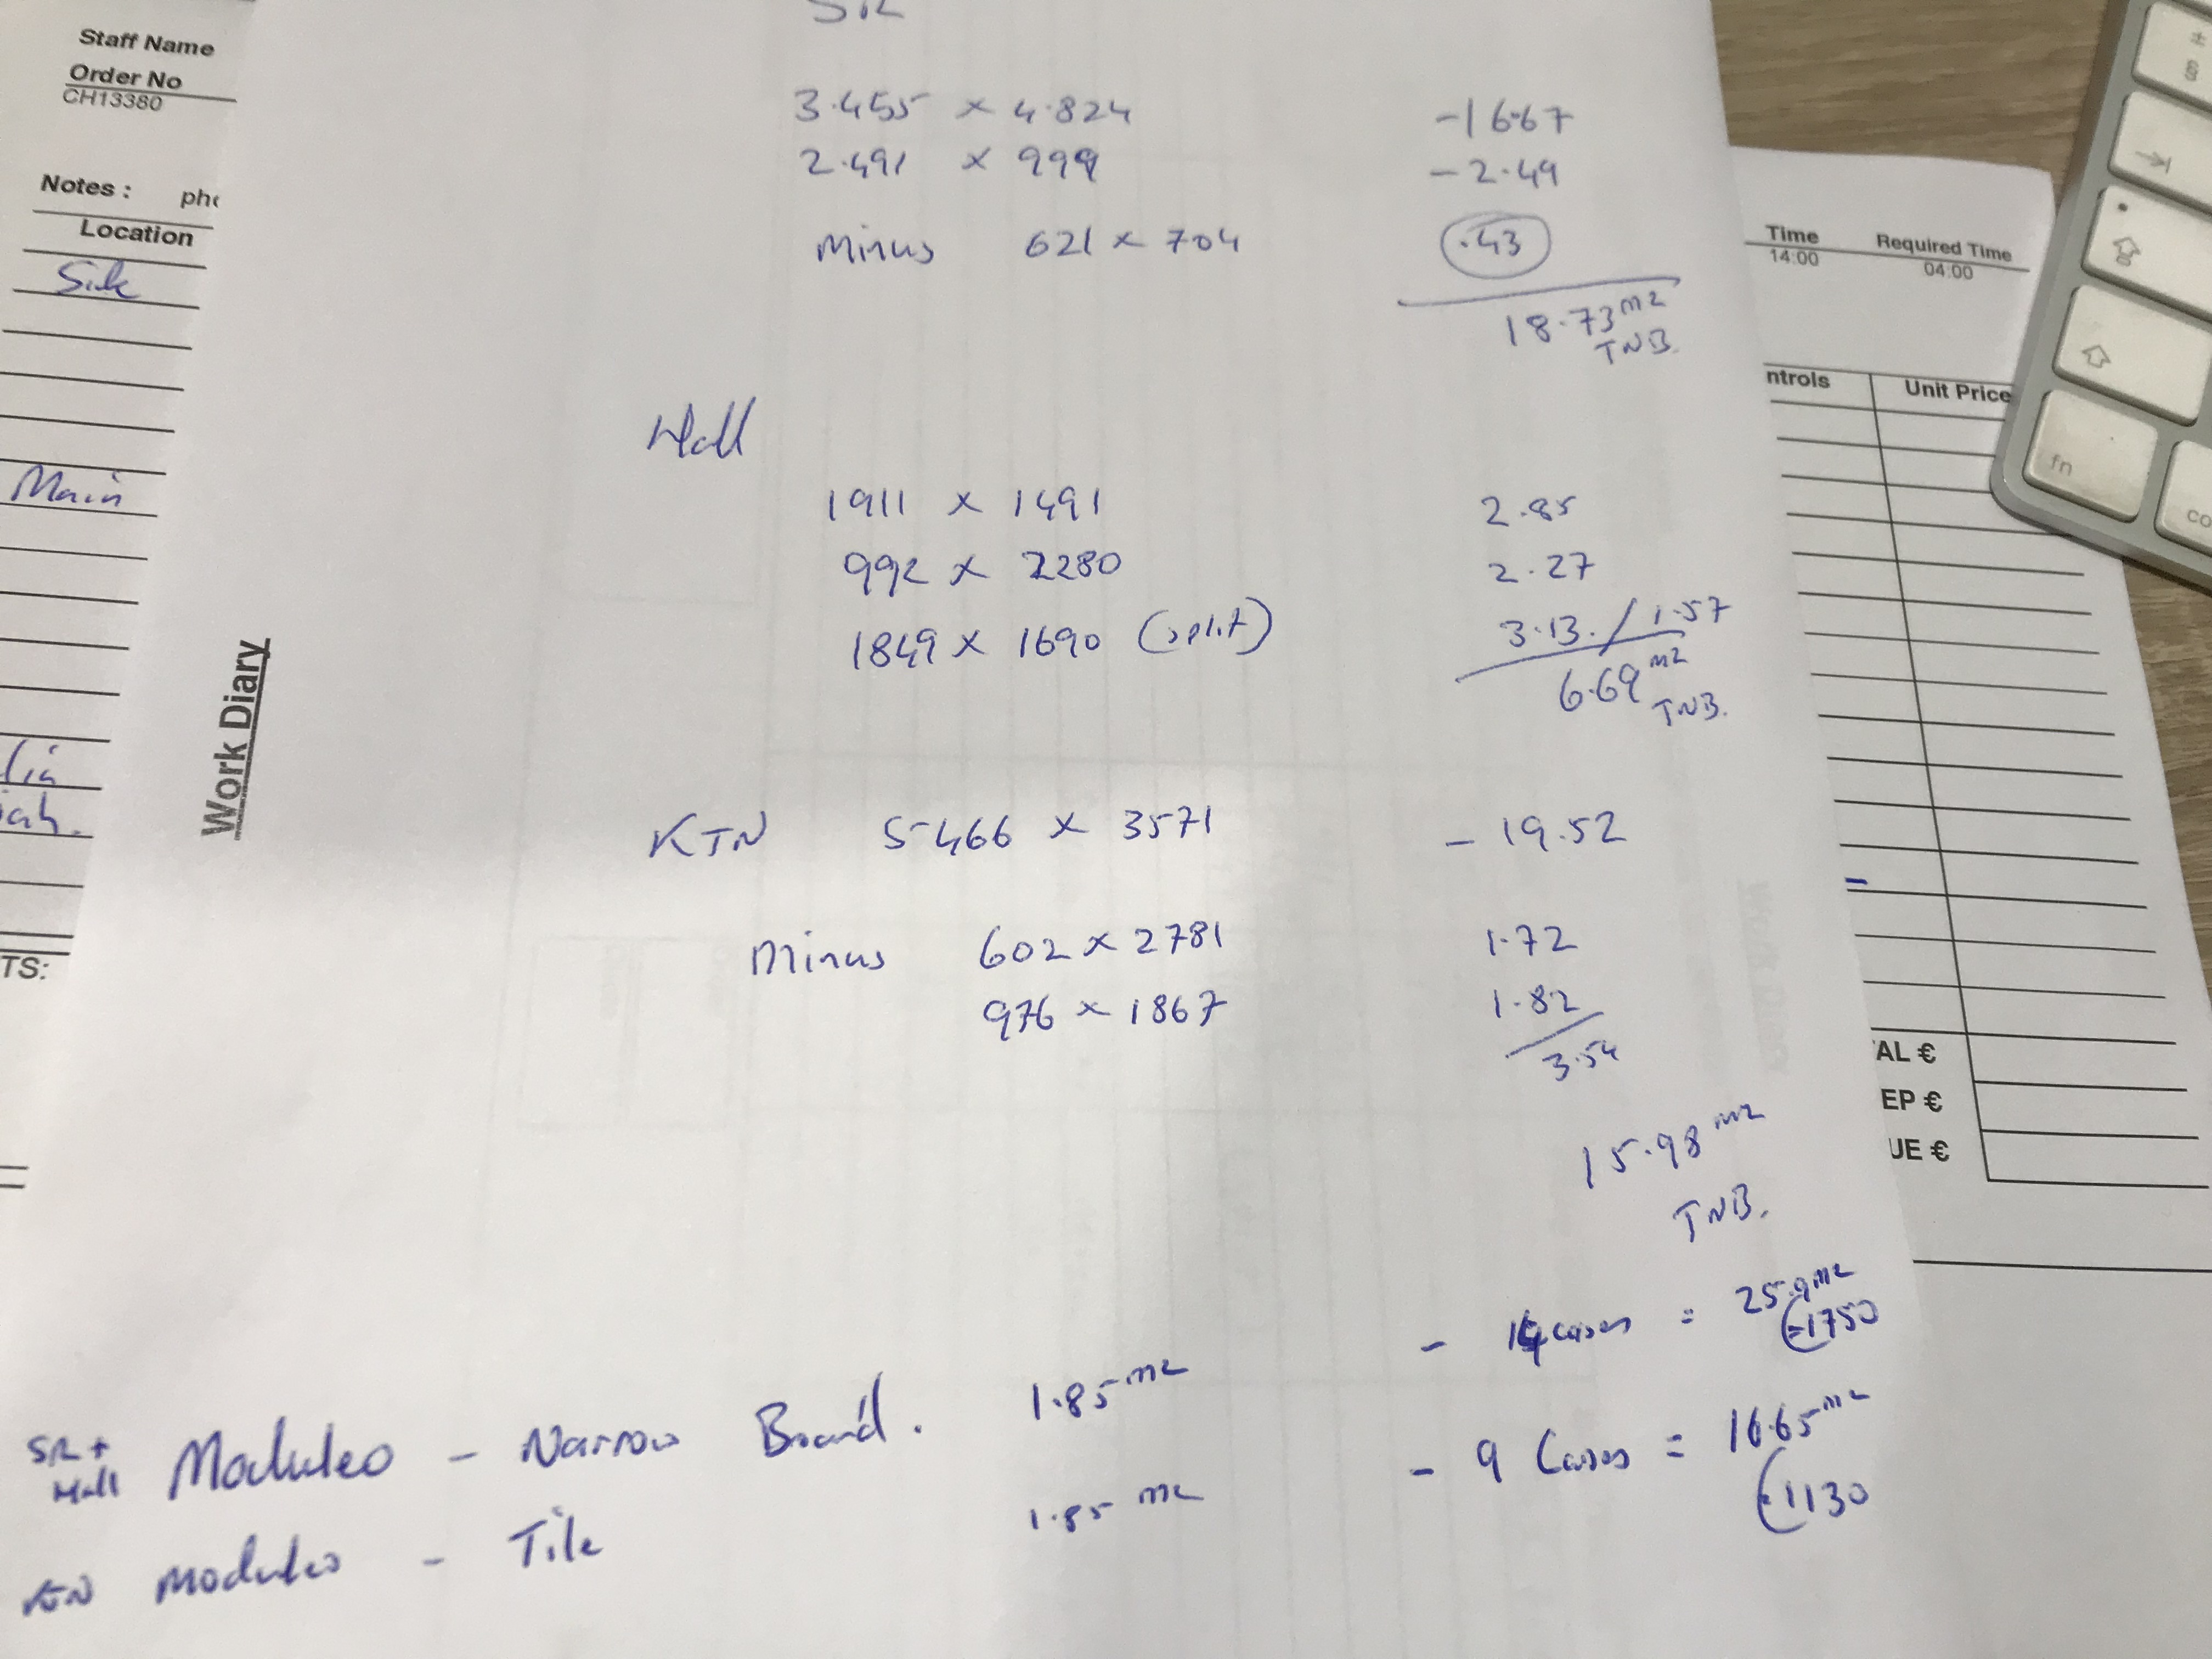 Staff Name
Order No
CH13380
Notes :
Location
Main
TS:
Work Diary
3.455 x 4.824 -16.67
2.491 x 999 - 2.49
Minus 621 x 704 .43
18.73 m2
TNB.
Hall
1911 x 1491 2.85
992 x 2280 2.27
1849 x 1690 (split) 3.13. / 1.57
6.69 m2
TNB.
KTN 5466 x 3571 - 19.52
Minus 602 x 2781 1.72
976 x 1867 1.82
3.54
15.98 m2
TNB.
- 14 cases = 25.9 m2
€1750
SR + Hall Moduleo - Narrow Board. 1.85 m2
- 9 Cases = 16.65 m2
€1130
KTN Moduleo - Tile 1.85 m2
Time Required Time
14:00 04:00
ntrols Unit Price
AL €
EP €
UE €
±
§
fn
co